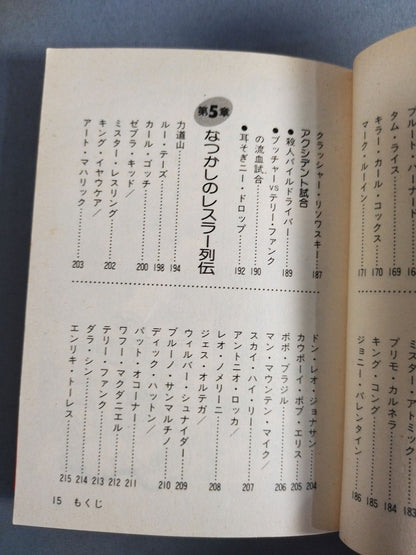 タム・ライス……169
キラー・カール・コックス……170
マーク・ルーイン……171
ミスター・アトミック……183
プリモ・カルネラ……184
キング・コング……185
ジョニー・バレンタイン……186
クラッシャー・リソワスキー……187
アクシデント試合
●殺人パイルドライバー……189
●ブッチャーvsテリー・ファンク
の流血試合……190
●耳そぎニー・ドロップ……192
第5章
なつかしのレスラー列伝
力道山……194
ルー・テーズ……198
カール・ゴッチ……200
ゼブラ・キッド／
ミスター・レスリング……202
キング・イヤウケア／
アート・マハリック……203
ドン・レオ・ジョナサン……204
カウボーイ・ボブ・エリス……205
ボボ・ブラジル……206
マン・マウンテン・マイク／
スカイ・ハイ・リー……207
アントニオ・ロッカ／
レオ・ノメリーニ……208
ジェス・オルテガ／
ウィルバー・シュナイダー……209
ブルーノ・サンマルチノ……210
ディック・ハットン／
パット・オコーナー……211
ワフー・マクダニエル……212
テリー・ファンク……213
ダラ・シン……214
エンリキ・トーレス……215
15 もくじ